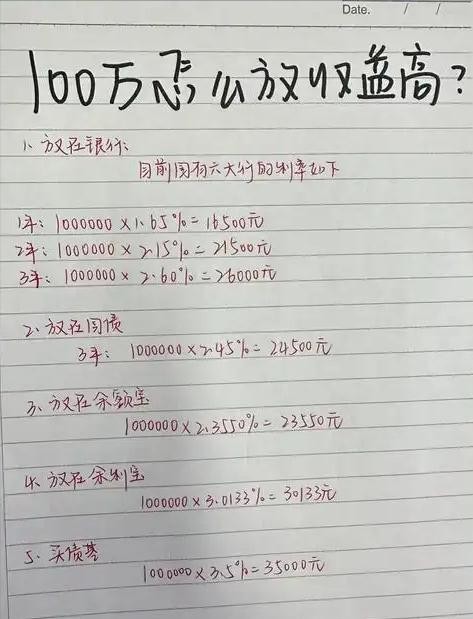 Date. / /
100万怎么放收益高?
1、放在银行:
目前国有六大行的利率如下
1年: 1000000×1.65%=16500元
2年: 1000000×2.15%=21500元
3年: 1000000×2.60%=26000元
2、放在国债
3年: 1000000×2.45%=24500元
3、放在余额宝
1000000×2.3550%=23550元
4、放在余利宝
1000000×3.0133%=30133元
5、买债基
1000000×3.5%=35000元